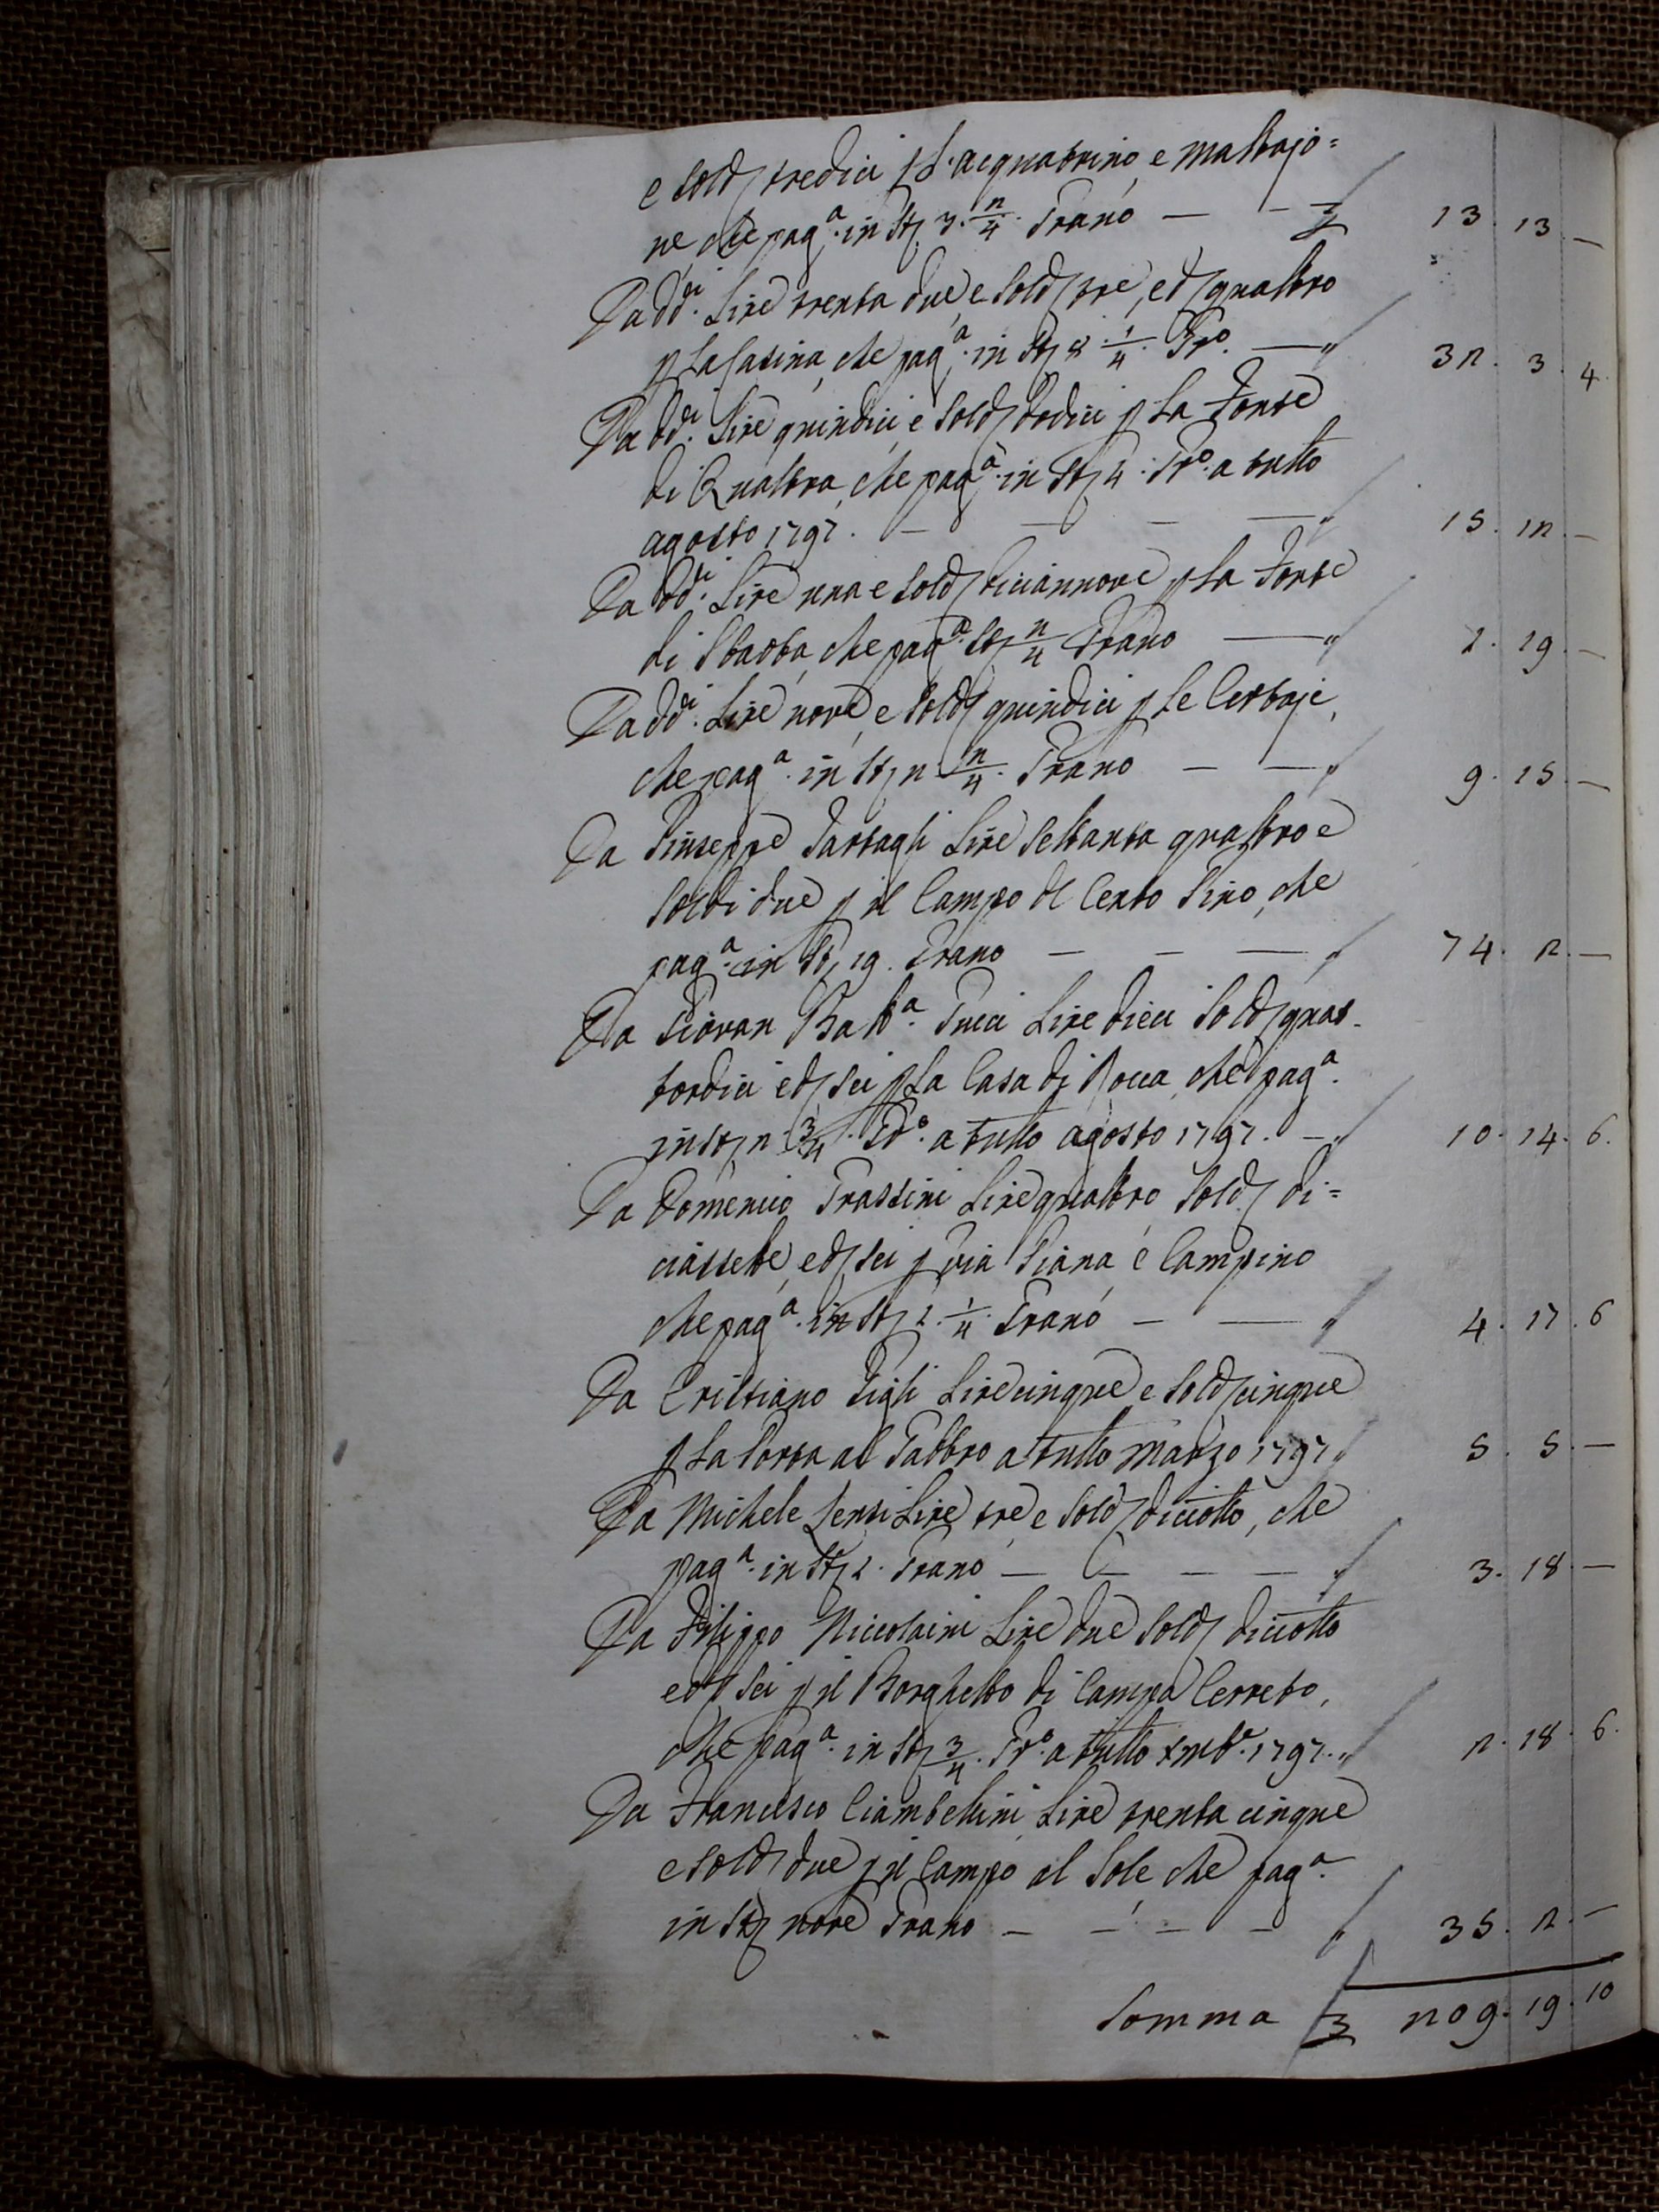 e sold tredici p l'acquatrino, e Mastajo=
ne, che pag.ª in st 3. 2/4. Grano — — 13. 13. —
Da dd.i Lire trenta due, e sold tre, e d quattro
p la Casina, che pag.ª in st 8. 1/4. Gr.o — " 32. 3. 4.
Da dd.i Lire quindici, e sold dodici p la Fonte
di Quattra, che pag.ª in st 4. Gr.o a tutto
agosto 1797. — — — — " 15. 12. —
Da dd.i Lire una e sold diciannove p la Fonte
di Sbarba, che pag.ª st 2/4 Grano — " 1. 19. —
Da dd.i Lire nove, e sold quindici p le Cerbaje,
che pag.ª in st 2. 2/4. Grano — — " 9. 15. —
Da Giuseppe Tartagli Lire settanta quattro e
soldi due p il Campo di Cento Lino, che
pag.ª in st 19. Grano — — — " 74. 2. —
Da Giovan Batt.ª Pucci Lire dieci sold quat-
tordici e d sei p la Casa di Rocca, che pag.ª
in st 2. 3/4. Gr.o a tutto agosto 1797. — " 10. 14. 6.
Da Domenico Grassini Lire quattro sold di=
ciassette, e d sei p via Piana, e Campino
che pag.ª in st 1. 1/4. Grano — — " 4. 17. 6
Da Cristiano Gigli Lire cinque e sold cinque
p la Porta al Fabbro a tutto Marzo 1797 " 5. 5. —
Da Michele Sensi Lire tre, e sold diciotto, che
pag.ª in st 1. Grano — — — — " 3. 18. —
Da Filippo Niccolaini Lire due sold diciotto
e d sei p il Borghetto di Campo Cerreto,
che pag.ª in st 3/4. Gr.o a tutto xmb.e 1797. " 2. 18. 6.
Da Francesco Ciambellini Lire trenta cinque
e sold due p il Campo al Sole che pag.ª
in st nove Grano — — — — " 35. 2. —
Somma 209. 19. 10